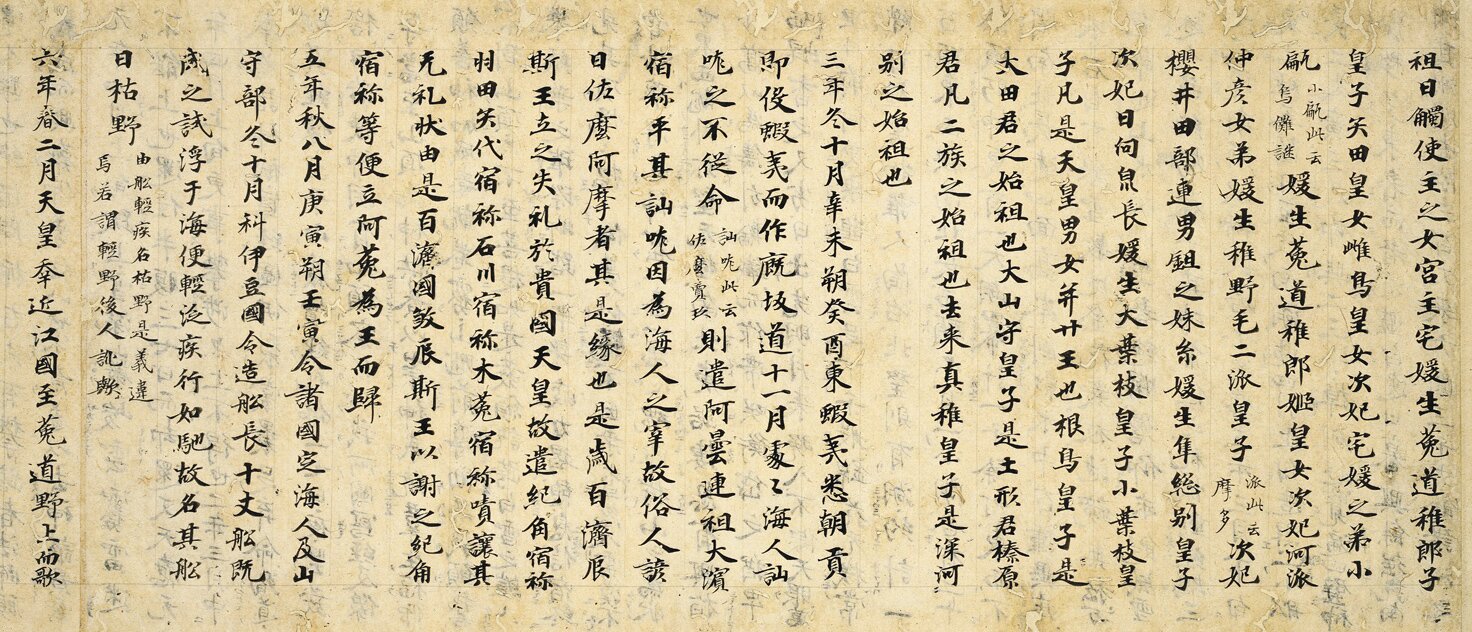 祖日觸使主之女宮主宅媛生菟道稚郎子
皇子矢田皇女雌鳥皇女次妃宅媛之弟小
甂小甂此云烏儺謎媛生菟道稚郎姬皇女次妃河派
仲彦女弟媛生稚野毛二派皇子派此云摩多次妃
櫻井田部連男鉏之妹糸媛生隼総別皇子
次妃日向泉長媛生大葉枝皇子小葉枝皇
子凡是天皇男女并廿王也根鳥皇子是
大田君之始祖也大山守皇子是土形君榛原
君凡二族之始祖也去来真稚皇子是深河
別之始祖也
三年冬十月辛未朔癸酉東蝦夷悉朝貢
即伇蝦夷而作厩坂道十一月處〻海人訕
哤之不従命訕哤此云佐麼賣玖則遣阿曇連祖大濱
宿祢平其訕哤因為海人之宰故俗人諺
曰佐麼阿摩者其是縁也是歳百濟辰
斯王立之失礼於貴國天皇故遣紀角宿祢
羽田矢代宿祢石川宿祢木菟宿祢嘖讓其
无礼状由是百濟國煞辰斯王以謝之紀角
宿祢等便立阿菟為王而歸
五年秋八月庚寅朔壬寅令諸國定海人及山
守部冬十月科伊豆國令造舩長十丈舩既
成之試浮于海便輕泛疾行如馳故名其舩
曰枯野由舩輕疾名枯野是義違焉若謂輕野後人訛歟
六年春二月天皇幸近江國至菟道野上而歌